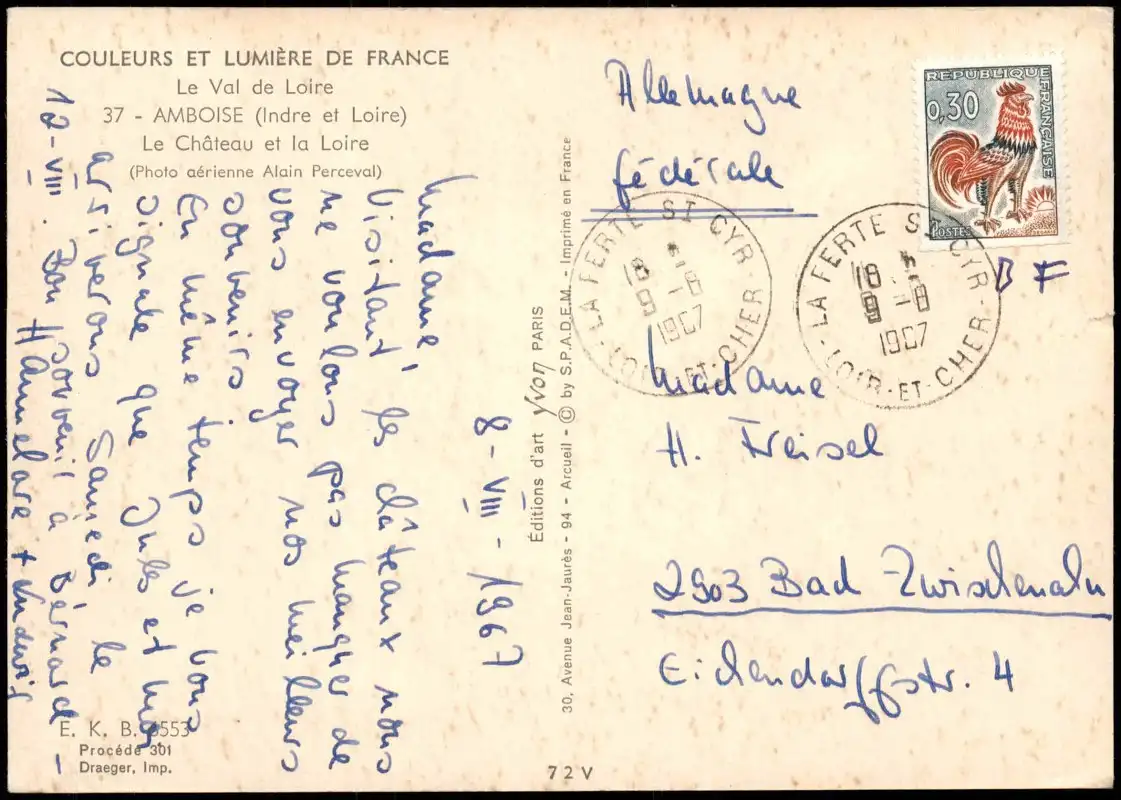 COULEURS ET LUMIÈRE DE FRANCE
Le Val de Loire
37 - AMBOISE (Indre et Loire)
Le Château et la Loire
(Photo aérienne Alain Perceval)
8-VIII-1967
Madame,
Visitant les châteaux nous
ne voulons pas manquer de
vous envoyer nos meilleurs
souvenirs.
En même temps je vous
signale que Jules et moi
arriverons Samedi le
12-VIII. Bon souvenir à Bernard-
Hannelore + Ludwig
E. K. B. 8553
Procédé 301
Draeger, Imp.
Éditions d'art Yvon PARIS
30, Avenue Jean-Jaurès - 94 - Arcueil - © by S.P.A.D.E.M. - Imprimé en France
72V
Allemagne
fédérale
REPUBLIQUE FRANÇAISE
0,30
POSTES
LA FERTE ST CYR
18
9-8
1967
LOIR-ET-CHER
LA FERTE ST CYR
18
9-8
1967
LOIR-ET-CHER
Madame
H. Freisel
2903 Bad Zwischenahn
Eichendorffstr. 4